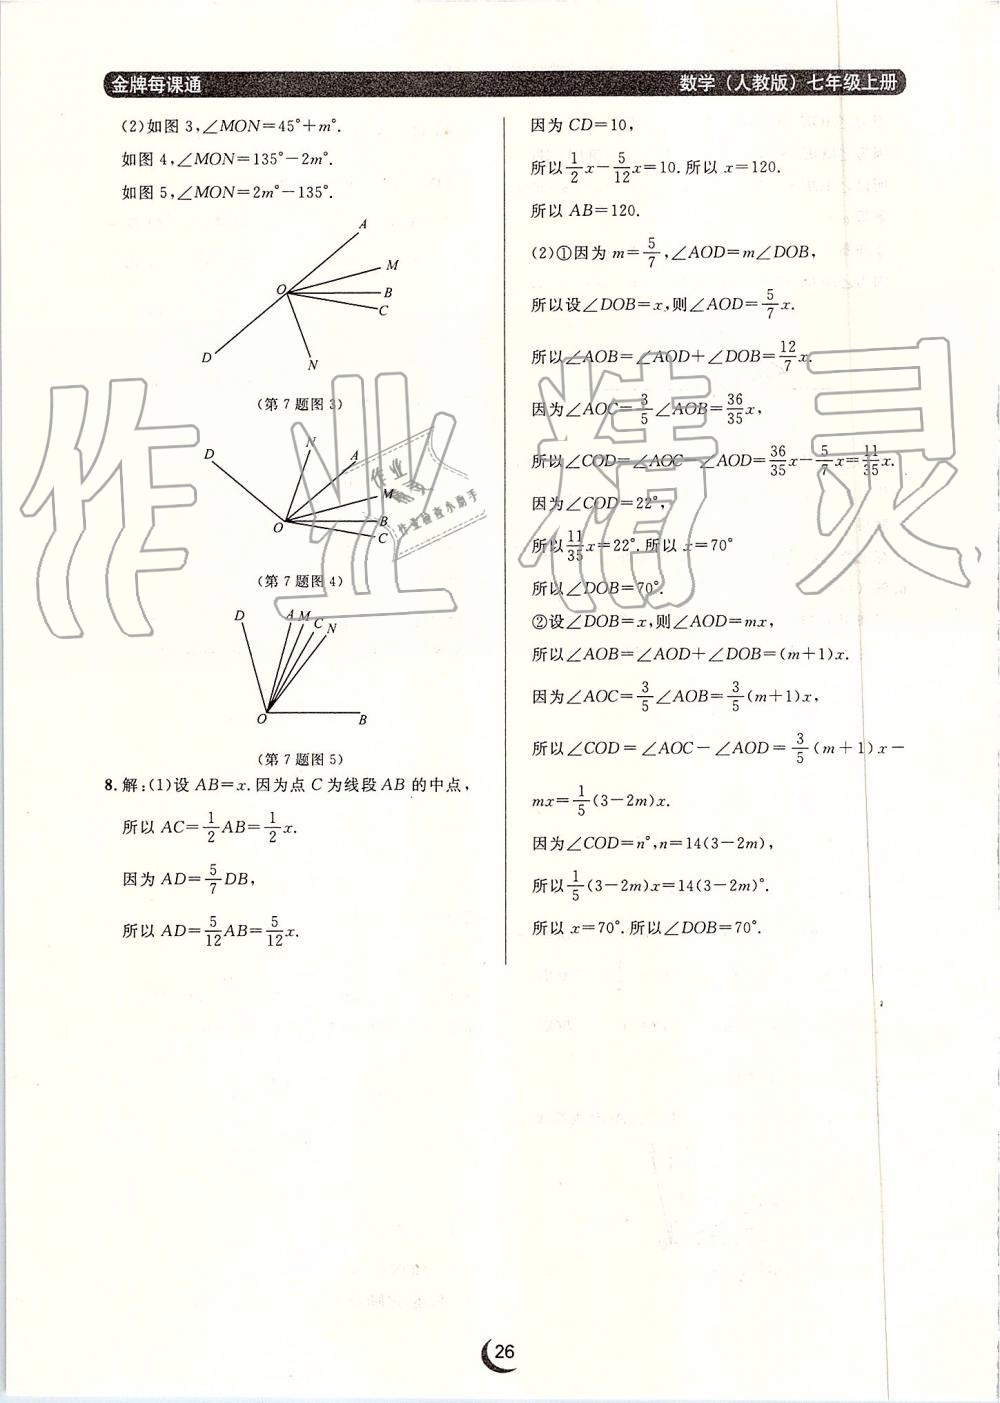 金牌每课通
数学（人教版）七年级上册
(2)如图 3,∠MON=45°+m°.
如图 4,∠MON=135°-2m°.
如图 5,∠MON=2m°-135°.
A
M
O
B
C
D
N
(第 7 题图 3)
N
D
A
M
B
O
C
(第 7 题图 4)
D
A M C N
O
B
(第 7 题图 5)
8.解:(1)设 AB=x.因为点 C 为线段 AB 的中点,
所以 AC=1/2 AB=1/2 x.
因为 AD=5/7 DB,
所以 AD=5/12 AB=5/12 x.
因为 CD=10,
所以 1/2 x-5/12 x=10.所以 x=120.
所以 AB=120.
(2)①因为 m=5/7,∠AOD=m∠DOB,
所以设∠DOB=x,则∠AOD=5/7 x.
所以∠AOB=∠AOD+∠DOB=12/7 x.
因为∠AOC=3/5 ∠AOB=36/35 x,
所以∠COD=∠AOC-∠AOD=36/35 x-5/7 x=11/35 x.
因为∠COD=22°,
所以 11/35 x=22°.所以 x=70°
所以∠DOB=70°.
②设∠DOB=x,则∠AOD=mx,
所以∠AOB=∠AOD+∠DOB=(m+1)x.
因为∠AOC=3/5 ∠AOB=3/5 (m+1)x,
所以∠COD=∠AOC-∠AOD=3/5 (m+1)x-
mx=1/5 (3-2m)x.
因为∠COD=n°,n=14(3-2m),
所以 1/5 (3-2m)x=14(3-2m)°.
所以 x=70°.所以∠DOB=70°.
作业精灵
作业
作业检查小助手
26